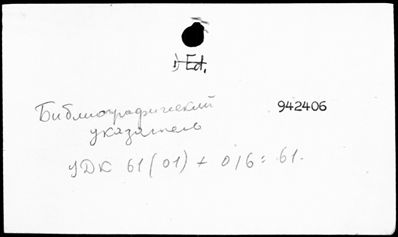 1) Ed.
Библиографический 942406
указатель
УДК 61(01) + 016:61.